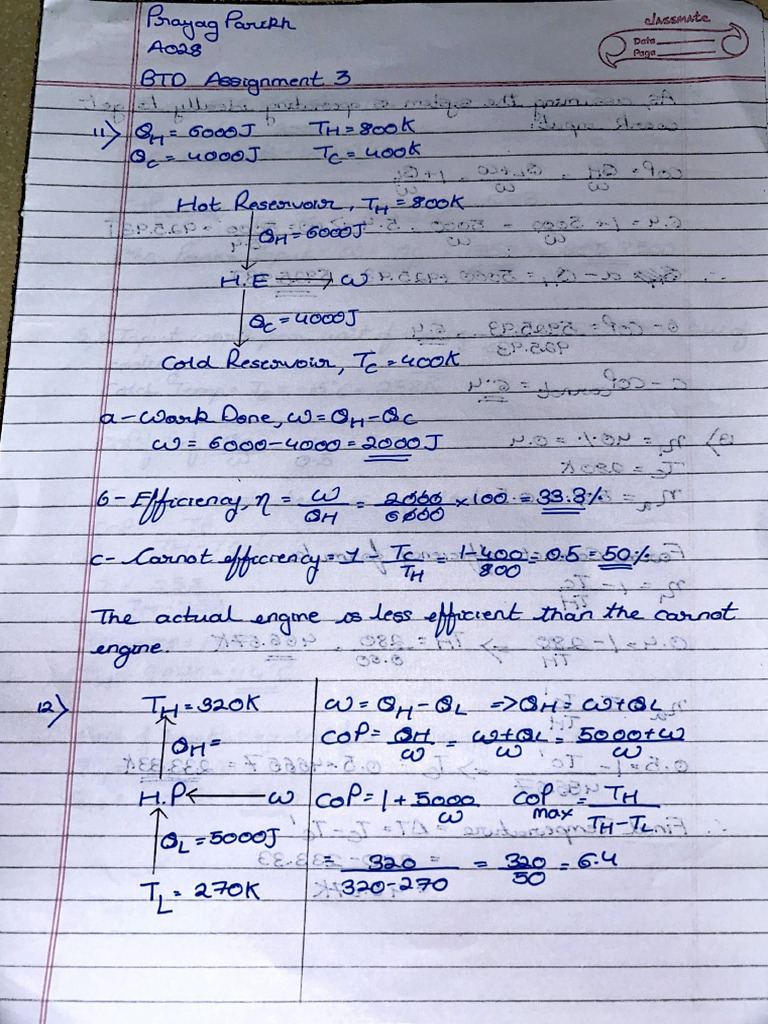 Prayag Parekh
classmate
Date
Page
A028
BTD Assignment 3
11) QH = 6000J TH = 800K
QC = 4000J TC = 400K
Hot Reservoir, TH = 800K
QH = 6000J
H.E → W
QC = 4000J
Cold Reservoir, TC = 400K
a - Work Done, W = QH - QC
W = 6000 - 4000 = 2000J
b - Efficiency, η = W/QH = 2000/6000 × 100 = 33.3%
c - Carnot efficiency = 1 - TC/TH = 1 - 400/800 = 0.5 = 50%
The actual engine is less efficient than the carnot
engine.
12) TH = 320K
QH =
H.P ← W
QL = 5000J
TL = 270K
W = QH - QL => QH = W + QL
COP = QH/W = W+QL/W = 5000+W/W
COP = 1 + 5000/W COP max = TH/TH-TL
= 320/320-270 = 320/50 = 6.4